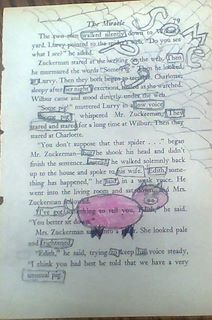 The Miracle 79
The two men walked silently down to Wilbur's
yard. Lurvy pointed to the spider's web. "Do you see
what I see?" he asked.
Zuckerman stared at the writing on the web. Then
he murmured the words "Some Pig." Then he looked
at Lurvy. Then they both began to tremble. Charlotte,
sleepy after her night's exertions, smiled as she watched.
Wilbur came and stood directly under the web.
"Some pig!" muttered Lurvy in a low voice.
"Some pig!" whispered Mr. Zuckerman. They
stared and stared for a long time at Wilbur. Then they
stared at Charlotte.
"You don't suppose that that spider . . ." began
Mr. Zuckerman he shook his head and didn't
finish the sentence. he walked solemnly back
up to the house and spoke to his wife. "Edith, some-
thing has happened," he said, in a weak voice. He
went into the living room and sat down, and Mrs.
Zuckerman
"I've got something to tell you, Edith," he said.
"You better sit down."
Mrs. Zuckerman sank into a She looked pale
and frightened.
"Edith," he said, trying to keep his voice steady,
"I think you had best be told that we have a very
unusual pig.